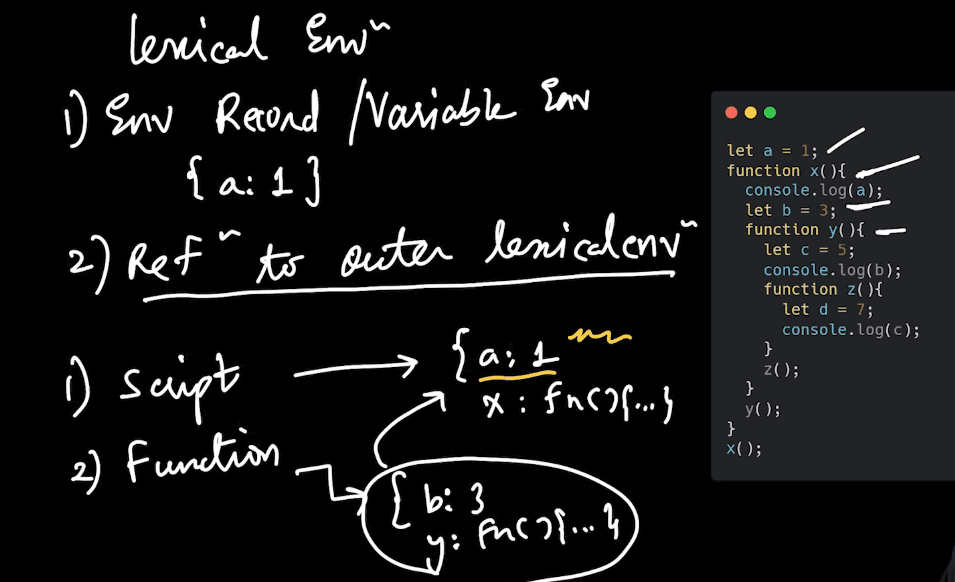 Lexical Envⁿ
1) Env Record /Variable Env
{ a: 1 }
2) Refⁿ to outer lexicalenvⁿ
1) Script
{ a: 1
x : fn(){...}
2) Function
{ b: 3
y: fn(){...}
let a = 1;
function x(){
console.log(a);
let b = 3;
function y(){
let c = 5;
console.log(b);
function z(){
let d = 7;
console.log(c);
}
z();
}
y();
}
x();